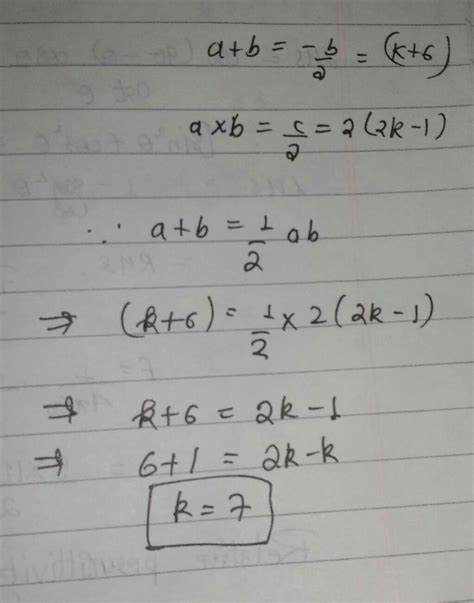 a+b = -b/2 = (k+6)
a×b = c/2 = 2(2k-1)
∵ a+b = 1/2 ab
⇒ (k+6) = 1/2 × 2(2k-1)
⇒ k+6 = 2k-1
⇒ 6+1 = 2k-k
k = 7